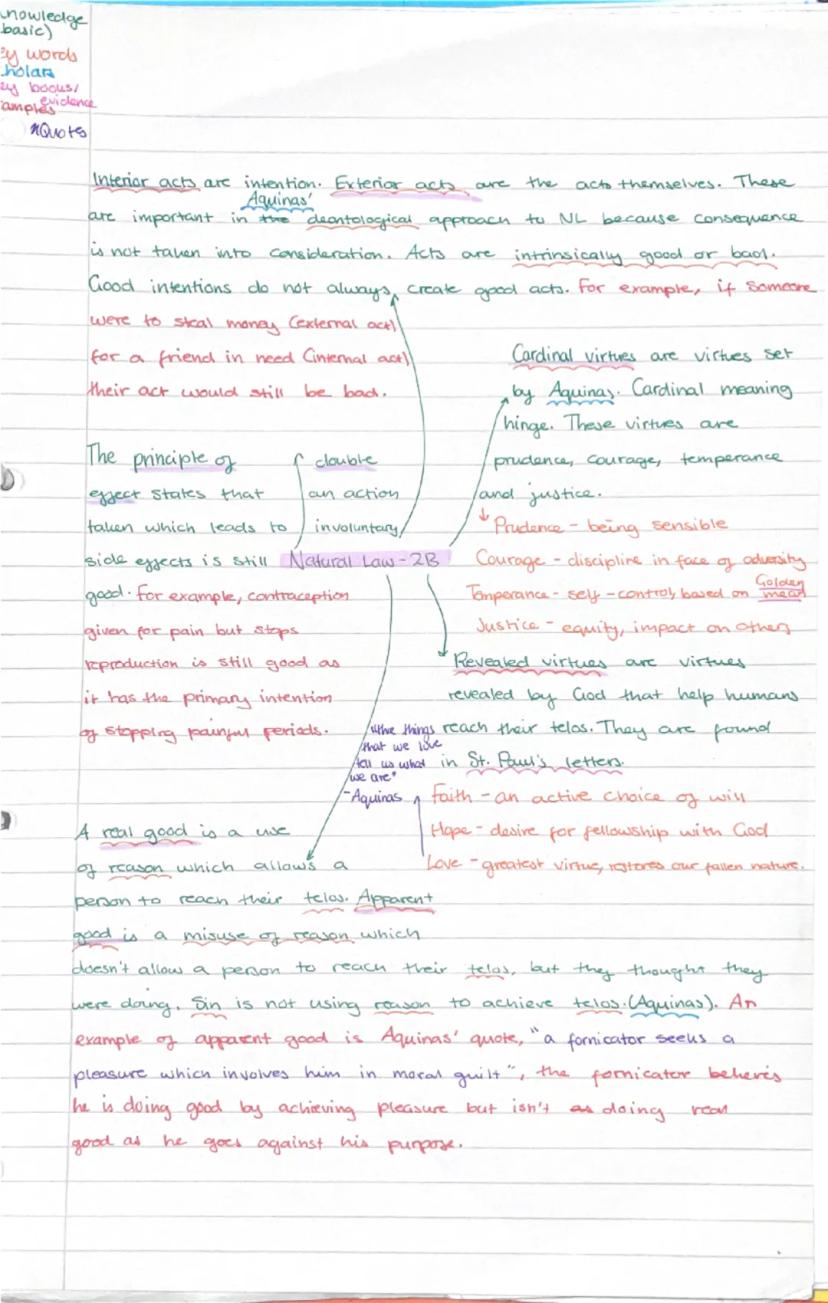 nowledge
basic)
ey words
holars
ey books/
evidence
amples
Quotes
Interior acts are intention. Exterior acts are the acts themselves. These
Aquinas'
are important in the deontological approach to NL because consequence
is not taken into consideration. Acts are intrinsically good or bad.
Good intentions do not always create good acts. For example, if someone
were to steal money (external act)
for a friend in need (internal act)
their act would still be bad.
Cardinal virtues are virtues set
by Aquinas. Cardinal meaning
hinge. These virtues are
prudence, courage, temperance
and justice.
Prudence - being sensible
Courage - discipline in face of adversity
Temperance - self-control, based on Golden mean
Justice - equity, impact on others
The principle of double
effect states that an action
taken which leads to involuntary
side effects is still
good. For example, contraception
given for pain but stops
reproduction is still good as
it has the primary intention
of stopping painful periods.
Natural Law - 2B
Revealed virtues are virtues
revealed by God that help humans
reach their telos. They are found
in St. Paul's letters.
"the things
that we love
tell us what
we are"
- Aquinas
Faith - an active choice of will
Hope - desire for fellowship with God
Love - greatest virtue, restores our fallen nature.
A real good is a use
of reason which allows a
person to reach their telos. Apparent
good is a misuse of reason which
doesn't allow a person to reach their telos, but they thought they
were doing. Sin is not using reason to achieve telos. (Aquinas). An
example of apparent good is Aquinas' quote, "a fornicator seeks a
pleasure which involves him in moral guilt", the fornicator believes
he is doing good by achieving pleasure but isn't doing real
good as he goes against his purpose.